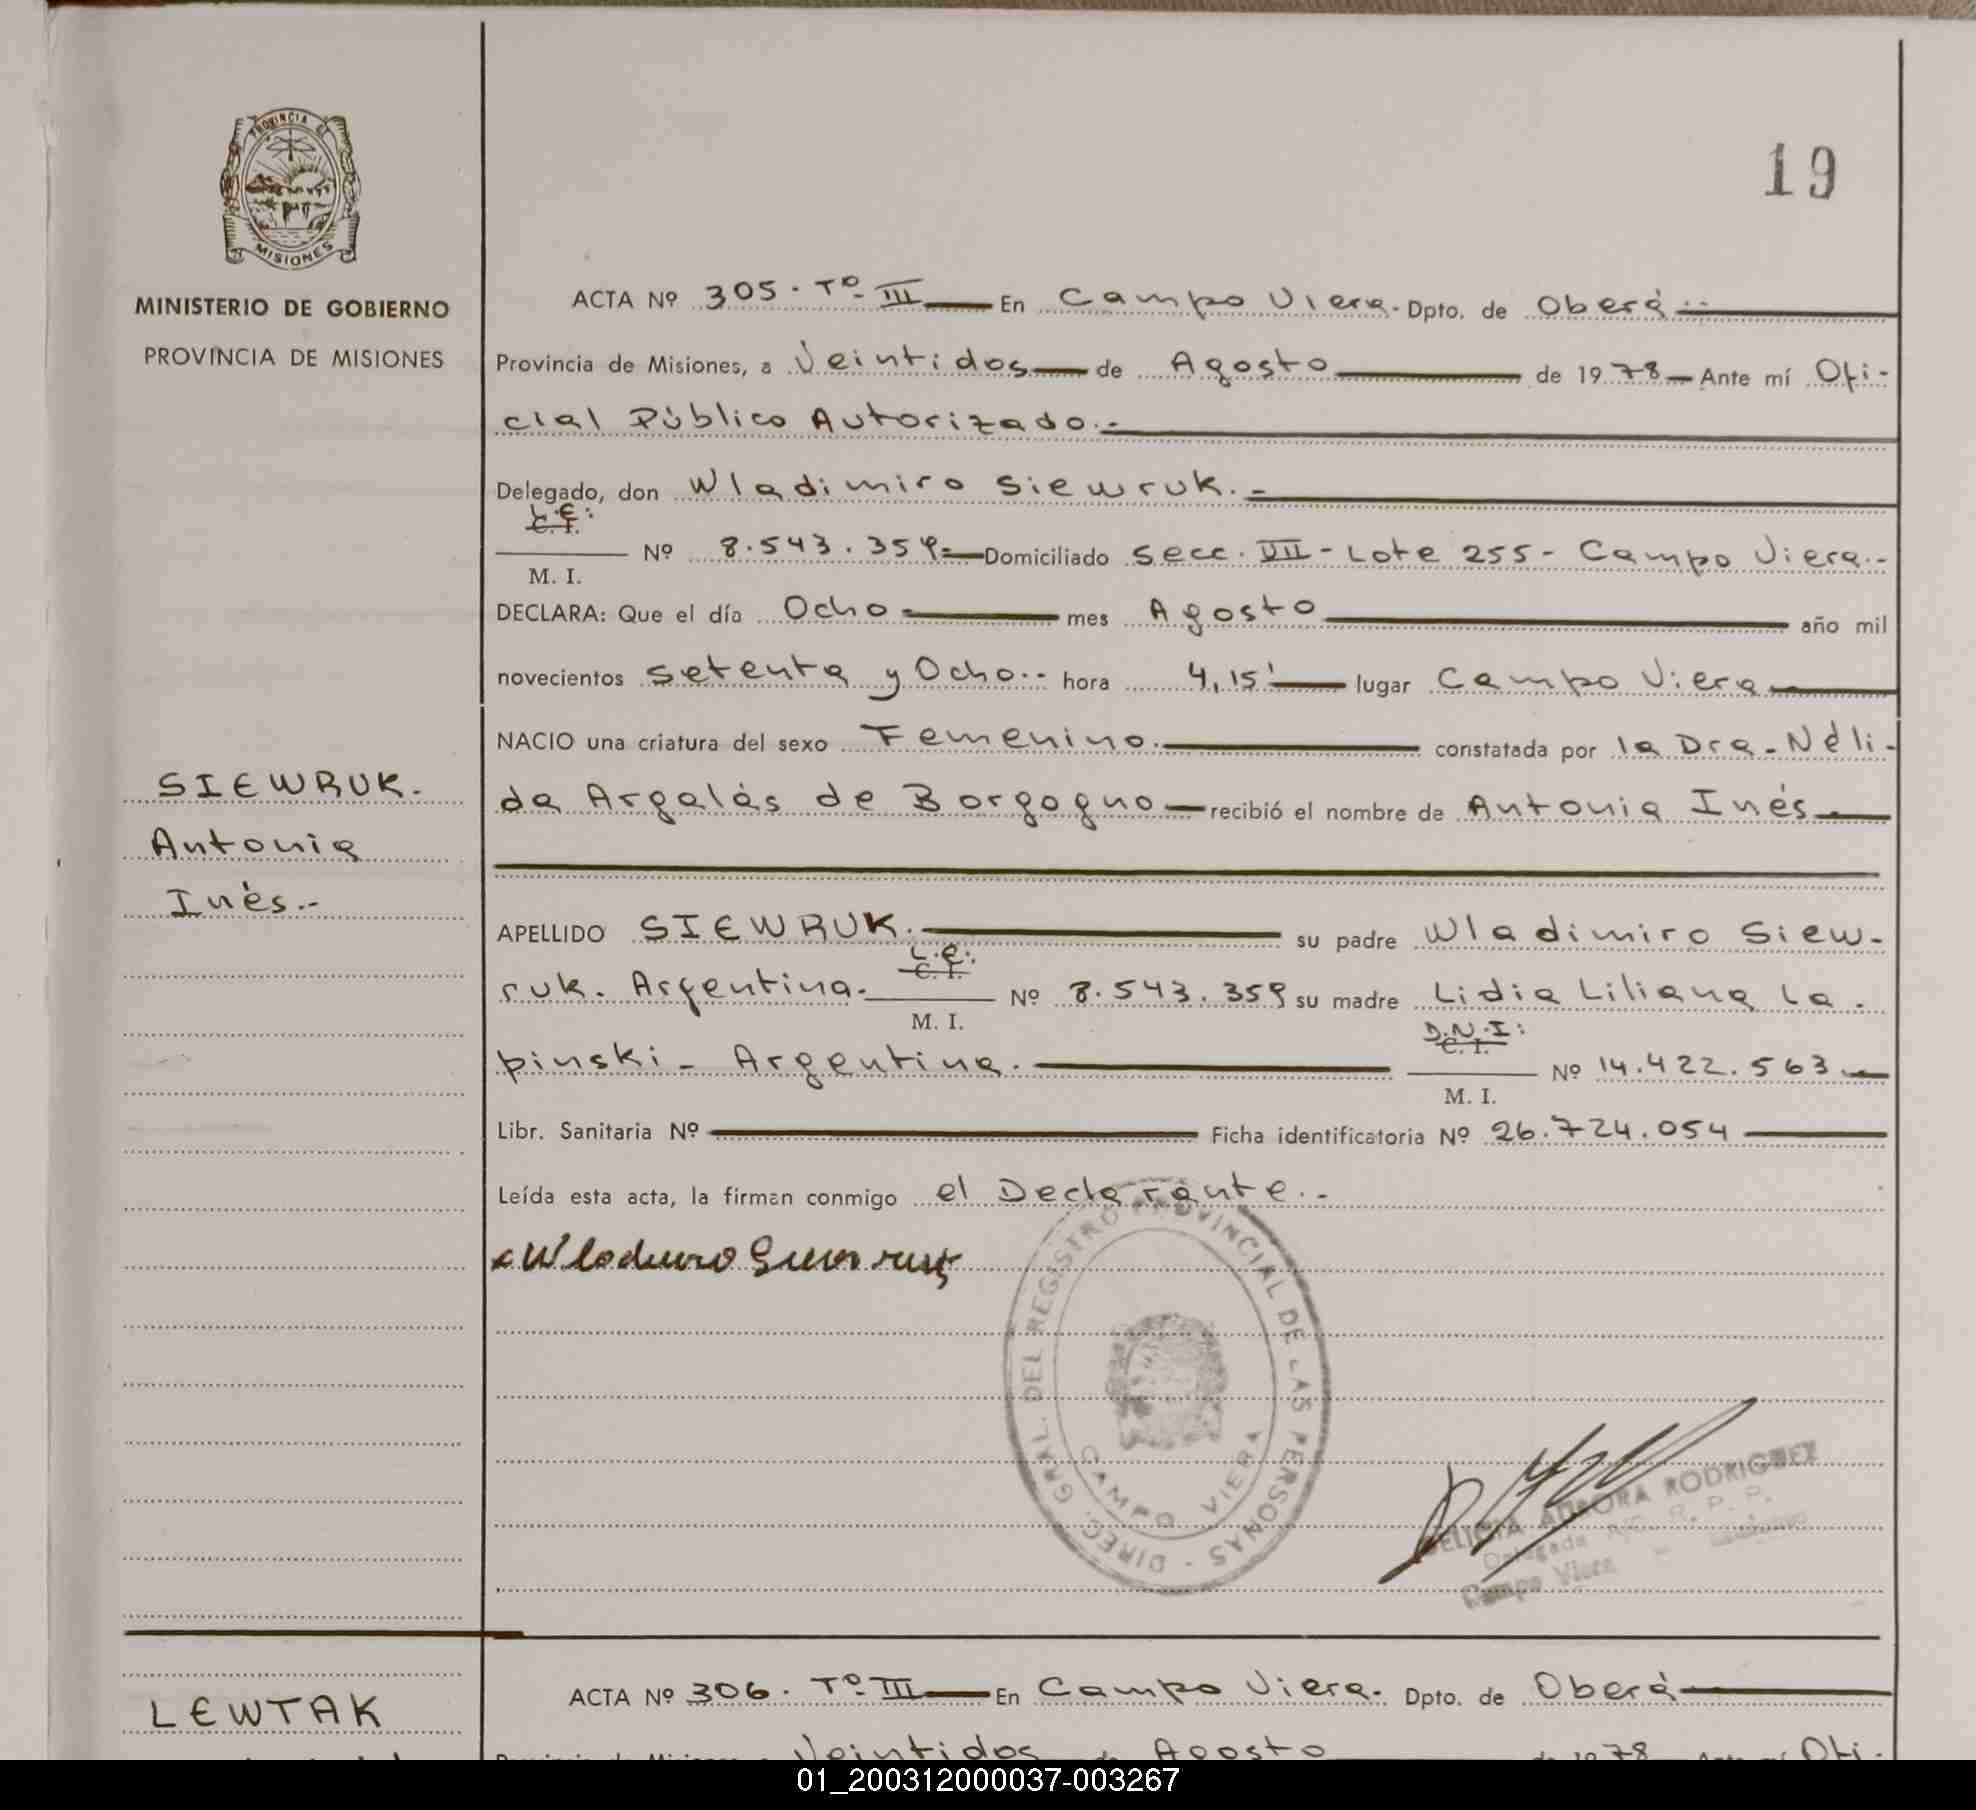 PROVINCIA DE
MISIONES
MINISTERIO DE GOBIERNO
PROVINCIA DE MISIONES
19
ACTA Nº 305. Tº III En Campo Viera. Dpto. de Oberá.-
Provincia de Misiones, a Veintidos de Agosto de 1978 Ante mí Ofi-
cial Público Autorizado.-
Delegado, don Wladimiro Siewruk.-
L.E:
C. I.
Nº 8.543.359.- Domiciliado Secc. VII - Lote 255 - Campo Viera.-
M. I.
DECLARA: Que el día Ocho mes Agosto año mil
novecientos Setenta y Ocho.- hora 4,15' lugar Campo Viera
NACIO una criatura del sexo Femenino. constatada por la Dra. Néli-
da Argalás de Borgogno recibió el nombre de Antonia Inés.
SIEWRUK.
Antonia
Inés.-
APELLIDO SIEWRUK. su padre Wladimiro Siew-
L.E:
C. I.
ruk. Argentina. Nº 8.543.359 su madre Lidia Liliana La.
M. I.
D.N.I:
C. I.
pinski - Argentina. Nº 14.422.563
M. I.
Libr. Sanitaria Nº Ficha identificatoria Nº 26.724.054
Leída esta acta, la firman conmigo el Declarante.-
Wladimiro Siewruk
DIREC. GRAL. DEL REGISTRO PROVINCIAL DE LAS PERSONAS -
CAMPO VIERA
DELICIA AURORA RODRIGUEZ
Delegada R. P. P.
Campo Viera - Misiones
ACTA Nº 306. Tº III En Campo Viera. Dpto. de Oberá
LEWTAK
Veintidos de Agosto de 1978 Ante mí Ofi-
01_200312000037-003267